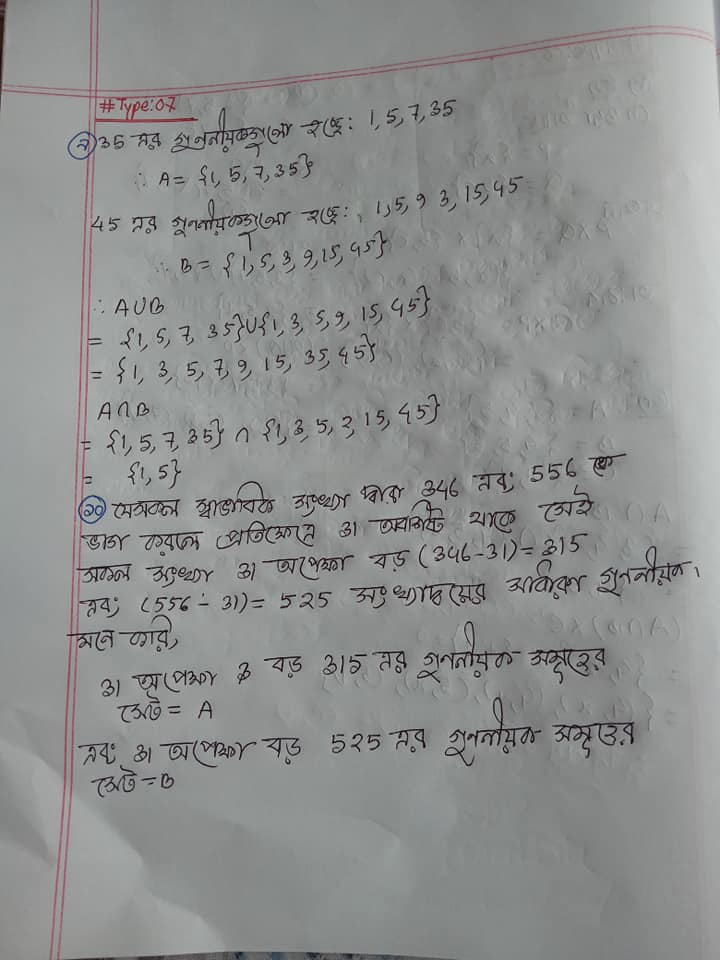 #Type:07
৯ 35 এর গুণনীয়কগুলো হচ্ছে: 1, 5, 7, 35
∴ A = {1, 5, 7, 35}
45 এর গুণনীয়কগুলো হচ্ছে: 1, 5, 9 3, 15, 45
∴ B = {1, 5, 3, 9, 15, 45}
∴ A∪B
= {1, 5, 7, 35}∪{1, 3, 5, 9, 15, 45}
= {1, 3, 5, 7, 9, 15, 35, 45}
A∩B
= {1, 5, 7, 35} ∩ {1, 3, 5, 9, 15, 45}
= {1, 5}
১০ যেসকল স্বাভাবিক সংখ্যা দ্বারা 346 এবং 556 কে
ভাগ করলে প্রতিক্ষেত্রে 31 অবশিষ্ট থাকে সেই
সকল সংখ্যা 31 অপেক্ষা বড় (346-31)= 315
এবং (556-31)= 525 সংখ্যাদ্বয়ের সাধারণ গুণনীয়ক।
মনে করি,
31 অপেক্ষা বড় 315 এর গুণনীয়ক সমূহের
সেট = A
এবং 31 অপেক্ষা বড় 525 এর গুণনীয়ক সমূহের
সেট = B